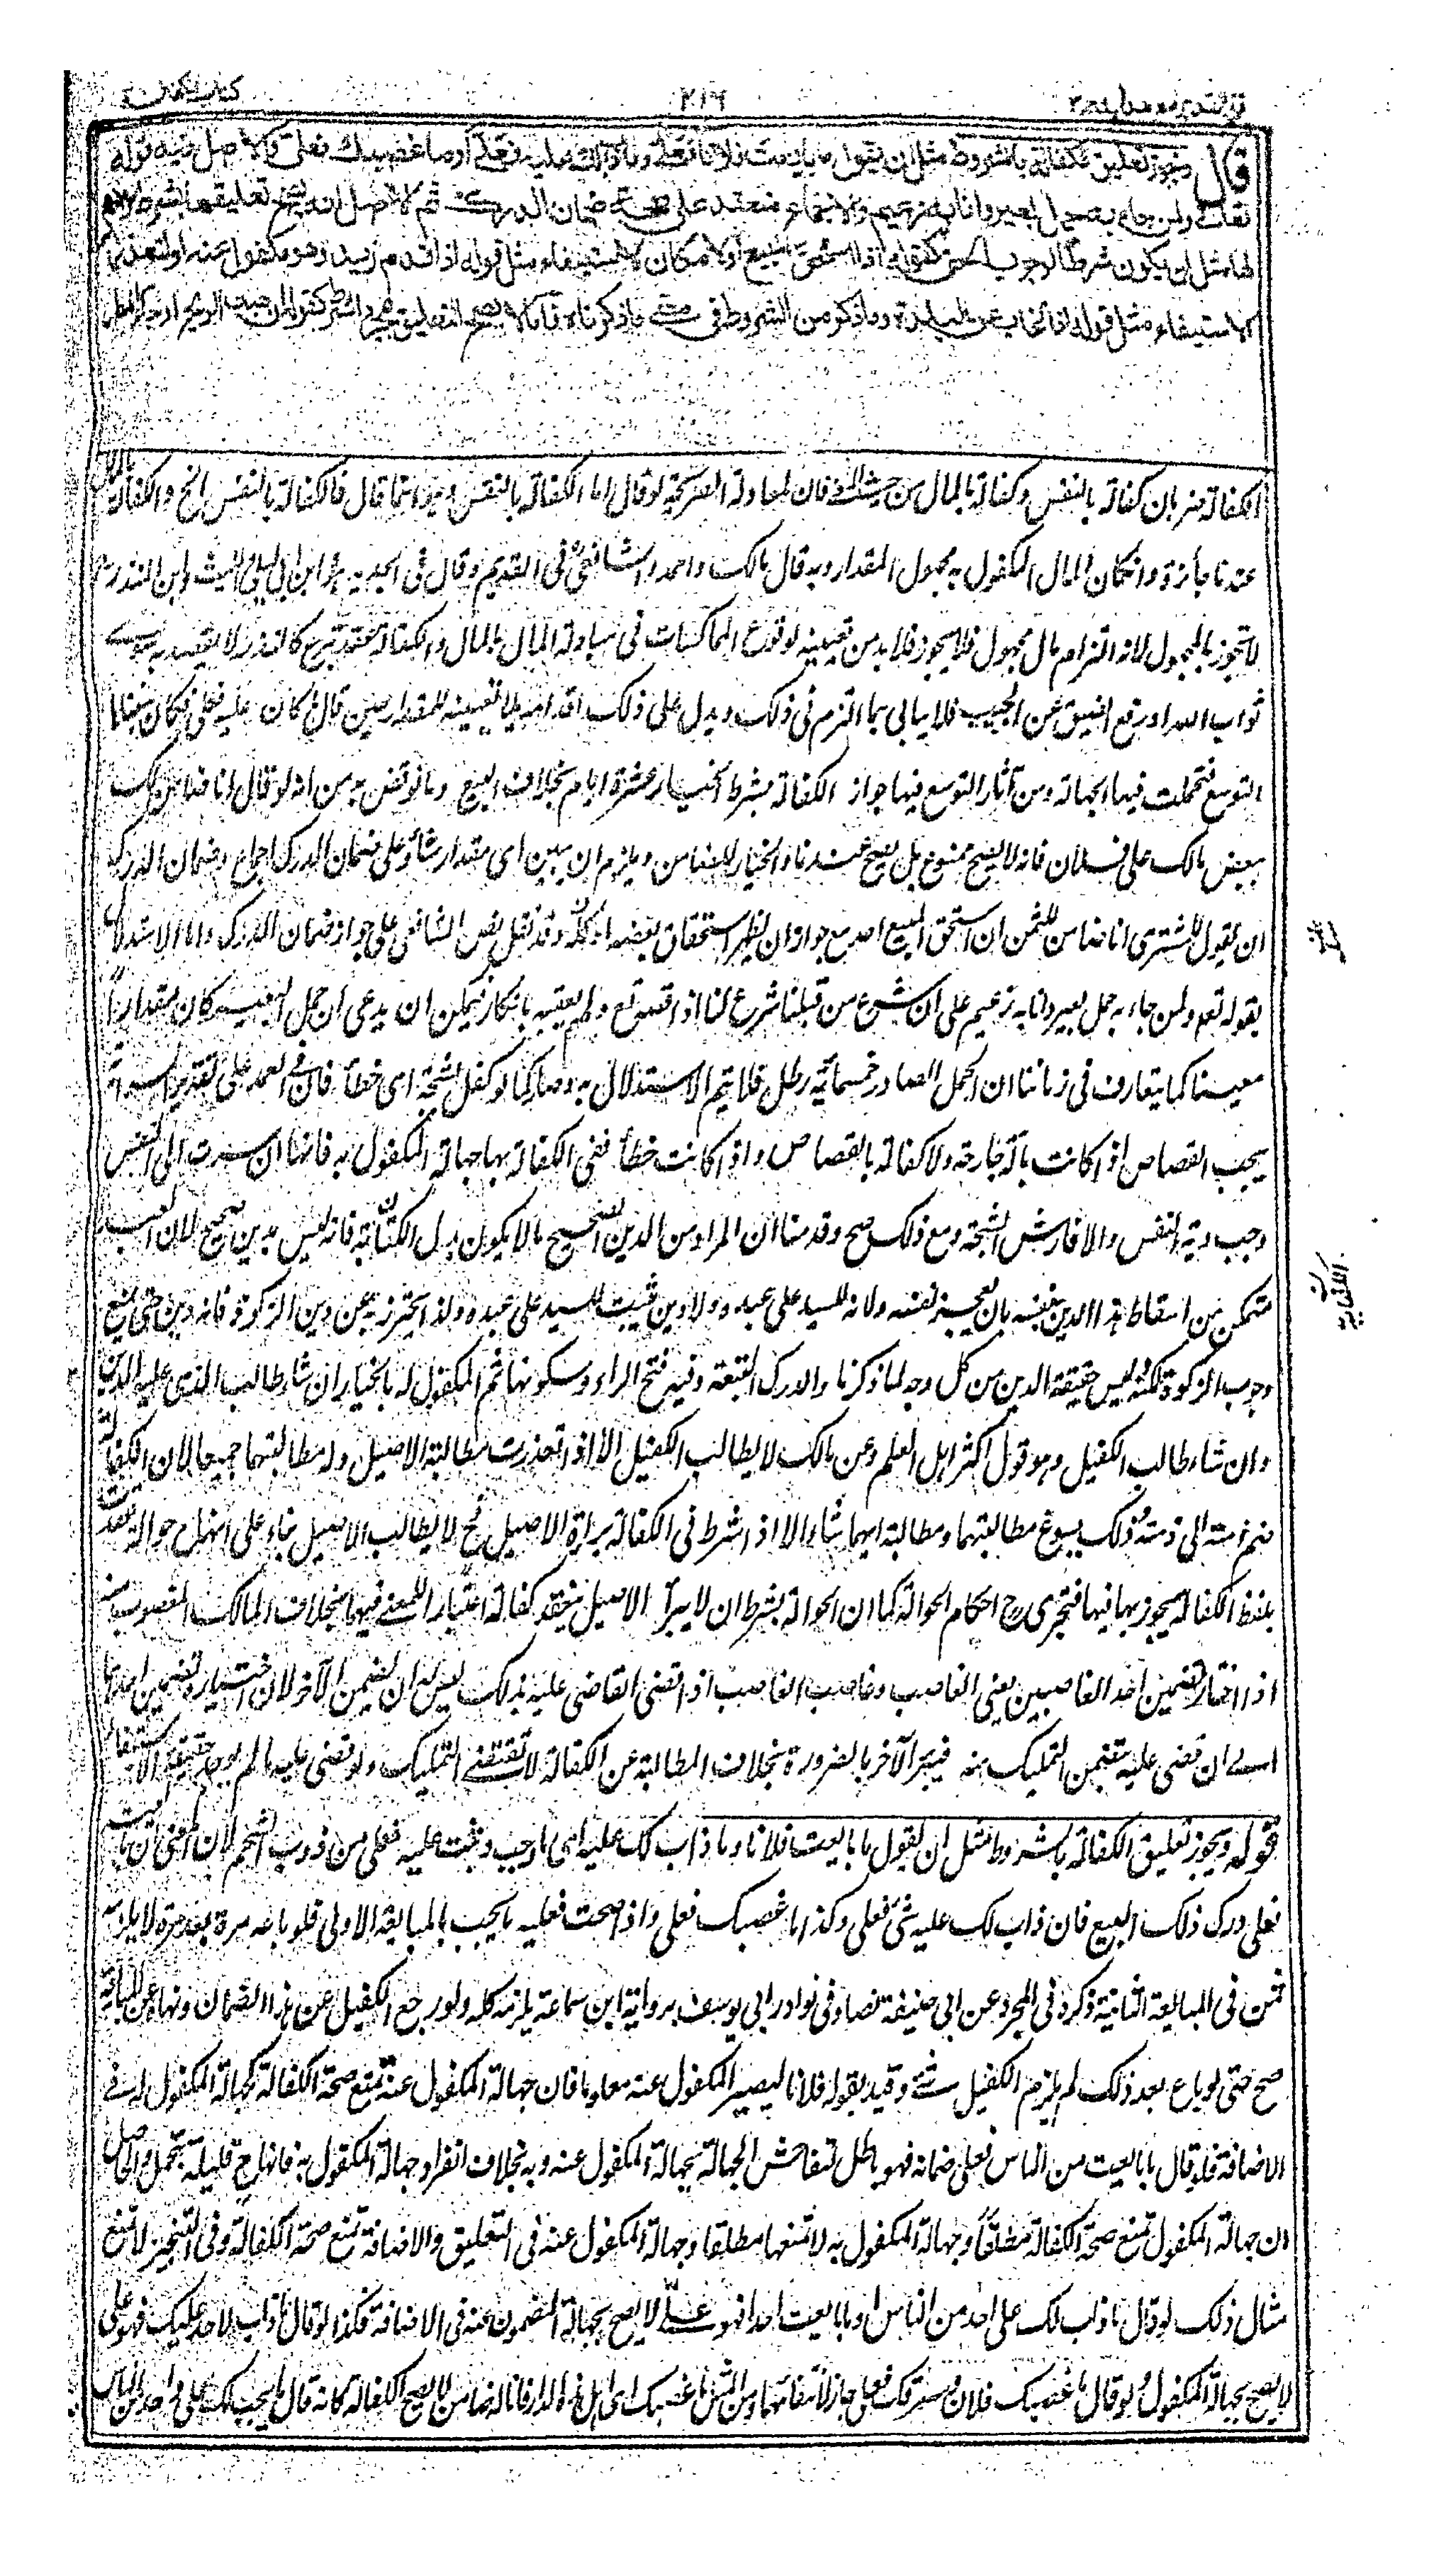 كتاب الكفالة
٢١٦
قال ويجوز تعليق الكفالة بالشروط مثل ان يقول ما بايعت فلانا فعلي وما ذاب لك عليه فعلي او ما غصبك فعلي والاصل فيه قوله
تعالى ولمن جاء به حمل بعير وانا به زعيم والاجماع منعقد على صحة ضمان الدرك ثم الاصل انه يصح تعليقها بشرط ملائم
لها مثل ان يكون شرطا لوجوب الحق كقوله اذا استحق المبيع او لامكان الاستيفاء مثل قوله اذا قدم زيد وهو مكفول عنه او لتعذر
الاستيفاء مثل قوله اذا غاب عن البلدة وما ذكر من الشروط في معنى ما ذكرناه فاما لا يصح التعليق بمجرد الشرط كقوله ان هبت الريح او جاء المطر
الكفالة ضربان كفالة بالنفس وكفالة بالمال من حيث المعنى فان المعادلة الصريحة لو قال اما الكفالة بالنفس وهو انما قال فالكفالة بالنفس الخ والكفالة بالمال
عندنا جائزة وان كان المال المكفول به مجهول المقدار وبه قال مالك واحمد والشافعي في القديم وقال في الجديد هو وابن ابي ليلى والليث وابن المنذر
لا تجوز بالمجهول لانه التزام مال مجهول فلا يجوز فلا بد من تعيينه لوقوع المماكسات في مبادلة المال بالمال والكفالة عقد تبرع كالنذر لا يقصد به سوى
ثواب الله او رفع الضيق عن الحبيب فلا يبالي بما التزم في ذلك ويدل على ذلك اقدامه بلا تعيينه للمقدار حين قال ما كان عليه فعلي فكان مبناها
التوسع فتحملت فيها الجهالة ومن آثار التوسع فيها جواز الكفالة بشرط الخيار عشرة ايام بخلاف البيع وما نوقض به من انه لو قال انا ضامن لك
ببعض مالك على فلان فانه لا يصح ممنوع بل يصح عندنا والخيار للضامن ويلزم ان يبين اي مقدار شاء وعلى ضمان الدرك اجماع وضمان الدرك
ان يقول للمشتري انا ضامن للثمن ان استحق المبيع احد مع جواز ان يظهر استحقاق بعضه او كله وقد نقل نص الشافعي على جواز ضمان الدرك واما الاستدلال
بقوله تعم ولمن جاء به حمل بعير وانا به زعيم على ان شرع من قبلنا شرع لنا اذا قص تع ولم يعقبه بانكار فيمكن ان يدعى ان حمل البعير كان مقدارا
معينا كما يتعارف في زماننا ان الحمل الصادر خمسمائة رطل فلا يتم الاستدلال به وصار كما لو كفل بشجة اي خطأ فان في العمد على تقدير السراية
يجب القصاص اذا كانت بآلة جارحة ولا كفالة بالقصاص واذا كانت خطأ ففي الكفالة بها جهالة المكفول به فانها ان سرت الى النفس
وجب دية النفس والا فارش الشجة ومع ذلك صح وقدمنا ان المراد من الدين الصحيح ما لا يكون بدل الكتابة فانه ليس بدين صحيح لان المكاتب
متمكن من اسقاط هذا الدين بنفسه بان يعجز نفسه ولانه للسيد على عبده ولا دين يثبت للسيد على عبده ولذا يحترز به عن دين الزكوة فانه دين حتى يمنع
وجوب الزكوة لكنه ليس حقيقة الدين من كل وجه لما ذكرنا والدرك التبعة وفيه فتح الراء وسكونها ثم المكفول له بالخيار ان شاء طالب الذي عليه الدين
وان شاء طالب الكفيل وهو قول اكثر اهل العلم وعن مالك لا يطالب الكفيل الا اذا تعذرت مطالبة الاصيل وله مطالبتهما جميعا لان الكفالة
ضم ذمة الى ذمة وذلك يسوغ مطالبتهما ومطالبة ايهما شاء الا اذا شرط في الكفالة براءة الاصيل فح لا يطالب الاصيل بناء على انها حوالة
بلفظ الكفالة يجوز بها فيها فتجري ح احكام الحوالة كما ان الحوالة بشرط ان لا يبرأ الاصيل ينعقد كفالة اعتبارا للمعنى فيهما بخلاف المالك المغصوب منه
اذا اختار تضمين احد الغاصبين يعني الغاصب وغاصب الغاصب اذا قضى القاضي عليه بذلك ليس له ان يضمن الآخر لان اختياره تضمين احدهما
الى ان قضى عليه يتضمن التمليك منه فيبرأ الآخر بالضرورة بخلاف المطالبة عن الكفالة لا تقتضى التمليك ولو قضى عليه ما لم يوجد حقيقة الاستيفاء
قوله ويجوز تعليق الكفالة بالشروط مثل ان يقول ما بايعت فلانا وما ذاب لك عليه اي ما وجب وثبت عليه فعلي من ذوب الشحم لان المعنى ان بايعت
فعلي درك ذلك البيع فان ذاب لك عليه شئ فعلي وكذا ما غصبك فعلي واذا صحت فعليه ما يجب بالمبايعة الاولى فلو باعه مرة بعد مرة لا يلزمه
ثمن في المبايعة الثانية ذكره في المجرد عن ابي حنيفة نصا وفي نوادر ابي يوسف برواية ابن سماعة يلزمه كله ولو رجع الكفيل عن هذا الضمان ونهاه عن المبايعة
صح حتى لو باع بعد ذلك لم يلزم الكفيل شئ وقيد بقوله فلانا ليصير المكفول عنه معلوما فان جهالة المكفول عنه تمنع صحة الكفالة كجهالة المكفول له في
الاضافة فلو قال ما بايعت من الناس فعلي ضمانه فهو باطل لتفاحش الجهالة بجهالة المكفول عنه وبه بخلاف انفراد جهالة المكفول به فانها ح قليلة تتحمل والحاصل
ان جهالة المكفول تمنع صحة الكفالة مطلقا وجهالة المكفول به لا تمنعها مطلقا وجهالة المكفول عنه في التعليق والاضافة تمنع صحة الكفالة وفي التنجيز لا تمنع
مثال ذلك لو قال ما ذاب لك على احد من الناس او ما بايعت احدا فهو علي لا يصح بجهالة المضمون عنه في الاضافة فكذا لو قال ما ذاب لاحد عليك فهو علي
لا يصح بجهالة المكفول ولو قال ما غصبك فلان او سرقك فعلي جاز لا ... اهل هذه الدار فانا له ضامن لا يصح الكفالة كانه قال ما يجب لك على واحد من الناس
الكتابة